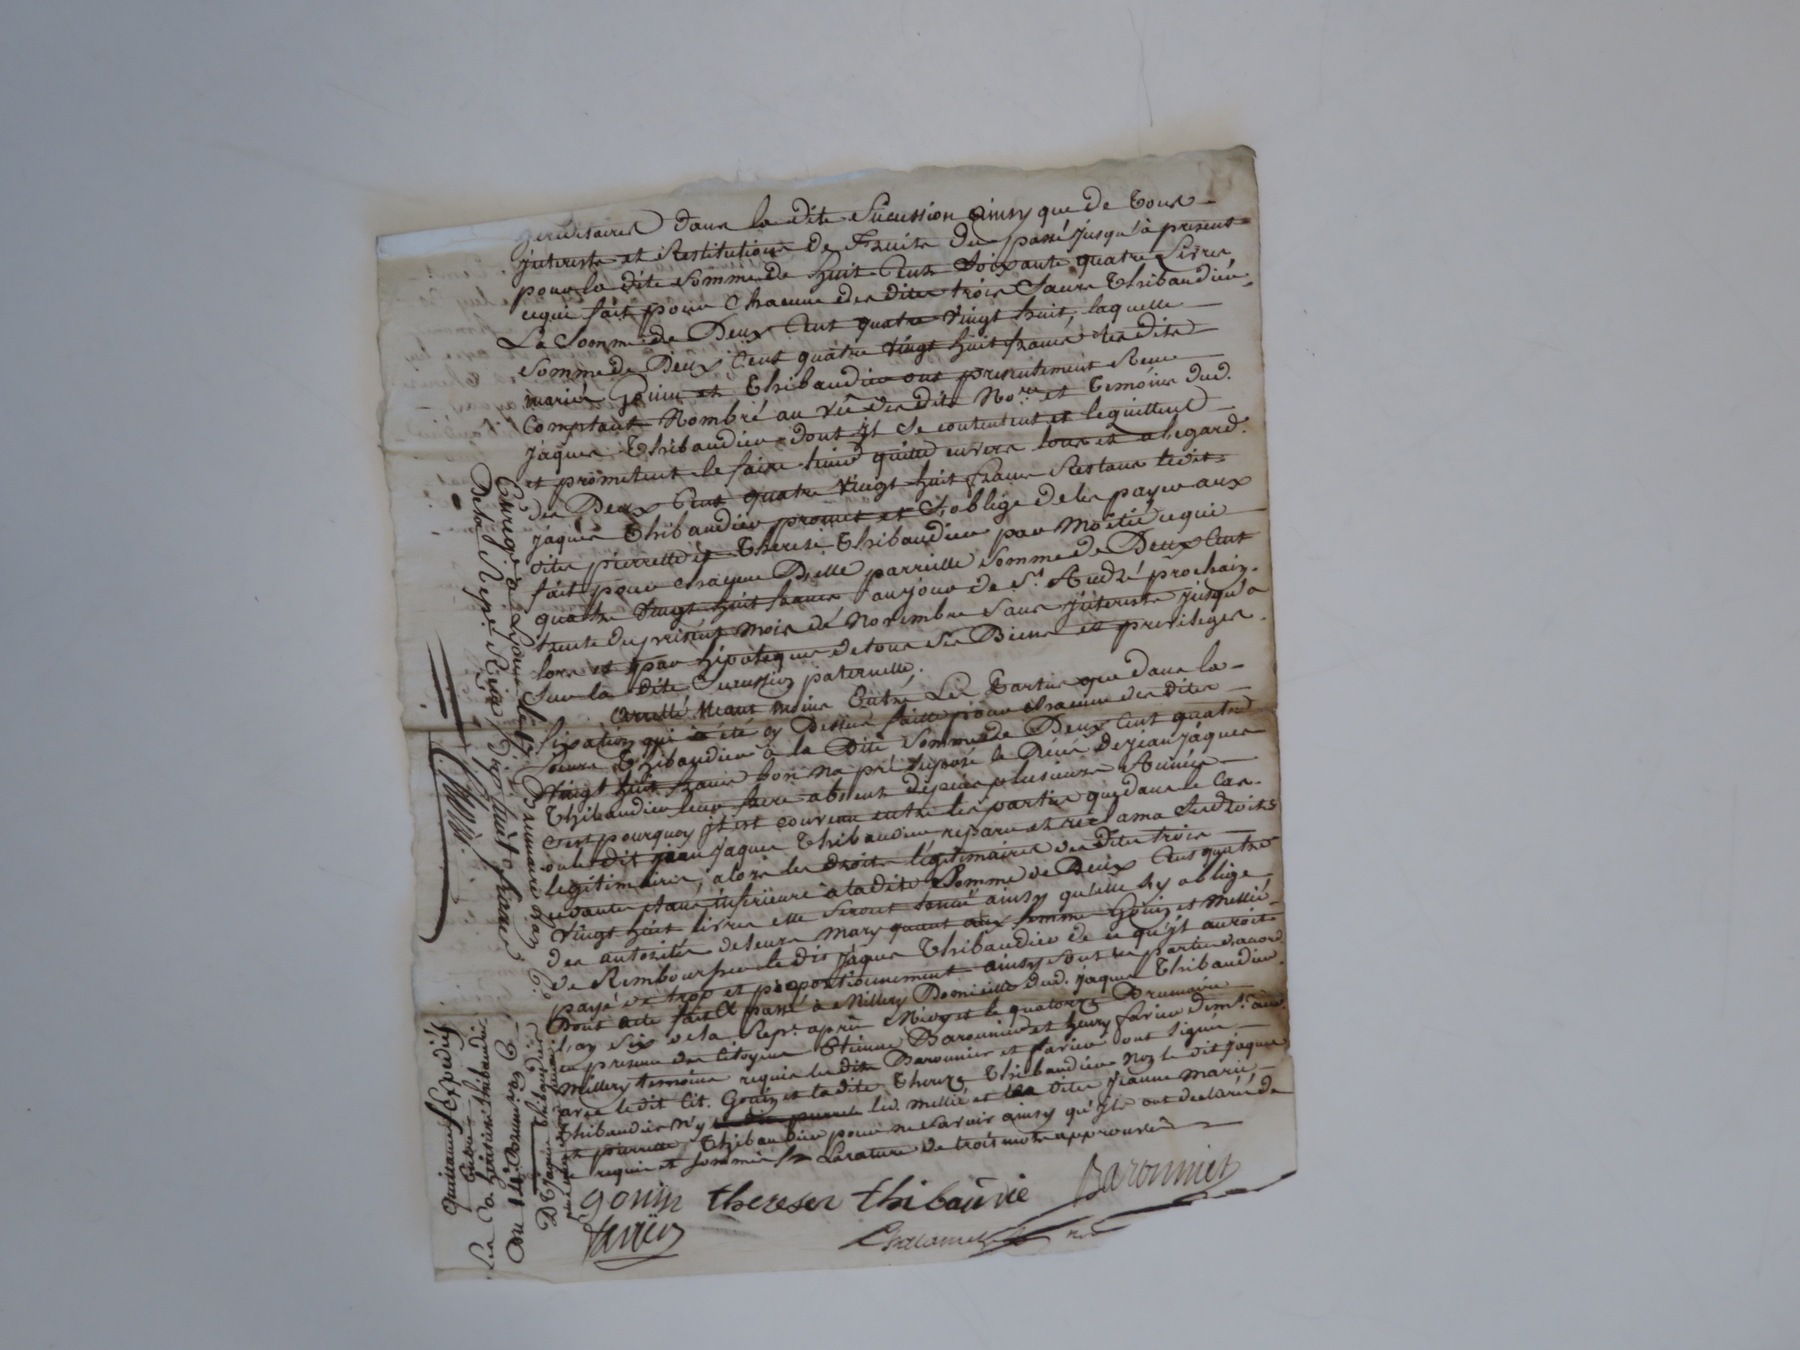 hereditaires dans la dite Sucession ainsy que de tous
jnterests et Restitutions de Fruits du passé jusqu'à present
pour la dite Somme de huit Cent Soixante quatre Livres
cequi fait pour Chacune des dites trois Sœurs Thibaudier
La Somme de Deux Cent quatre Vingt huit, laquelle
Somme de Deux Cent quatre Vingt huit francs lesdits
mariés Gonin et Thibaudier ont presentement Receu
Comptant Nombré au vû desdits No.re et temoins dud.
jaques Thibaudier dont jls se contentent et lequittent
et prometent le faire tenir quitte envers tous et alegard
des Deux Cent quatre Vingt huit francs Restans ledit
jaques Thibaudier promet et s'oblige de les payer aux
dites pierrette et Therese Thibaudier par Moitié cequi
fait pour chacune D'elle parreille Somme de Deux Cent
quatre Vingt huit francs au jour de S.t André prochain
trente du present Mois de Novembre Sans jnterests jusqu'a
lors et par hipoteque de tous ses Biens et privileges
Sur la dite Sucession paternelle,
Arretté Neant moins Entre Les Parties que dans la
fixation qui a été cy Dessus faitte pour chacune des dites
Sœurs Thibaudier à la Dite Somme de Deux Cent quatre
Vingt huit francs lon na pré supposé le Décés de jean jaques
Thibaudier leur frere absent depuis plusieurs Années
c'est pourquoy jl est convenu entre les parties que dans le Cas
ou le dit jean jaques Thibaudier reparu et reclama Ses droits
legitimaires, alors les droits légitimaires des dites trois
etant inferieure a la dite Somme de Deux Cent quatre
Vingt huit livres elle seront tenué ainsy qu'elle s'y oblige
des autorités de leurs mary quant aux femme Gonin et Mellié
de Rembourser le dit jaques Thibaudier de ce qu'jl auroit
payé de trop et proportionnement ainsy sont les parties d'acord
Dont acte fait & passé à Millery Domicille dud. jaques Thibaudier
L'an Six de la Rep.e après Midy et le quatorze Brumaire
en presence des Citoyens Etienne Baronnier et henry favier dem.t aud.
Millery temoins requis lesdits Baronnier et favier ont signé
avec le dit Cit. Gonin et la dite Therese Thibaudier Non le dit jaques
Thibaudier N'y led. Mellié et les dites jeanne Marie
et pierrette Thibaudier pour ne Savoir ainsy qu'jls ont declaré de
ce requis et sommés La rature de trois mots approuvée
gonin thereser thibaûdie Baronnier
favier
Du 14 Brumaire
Quittance Expediés